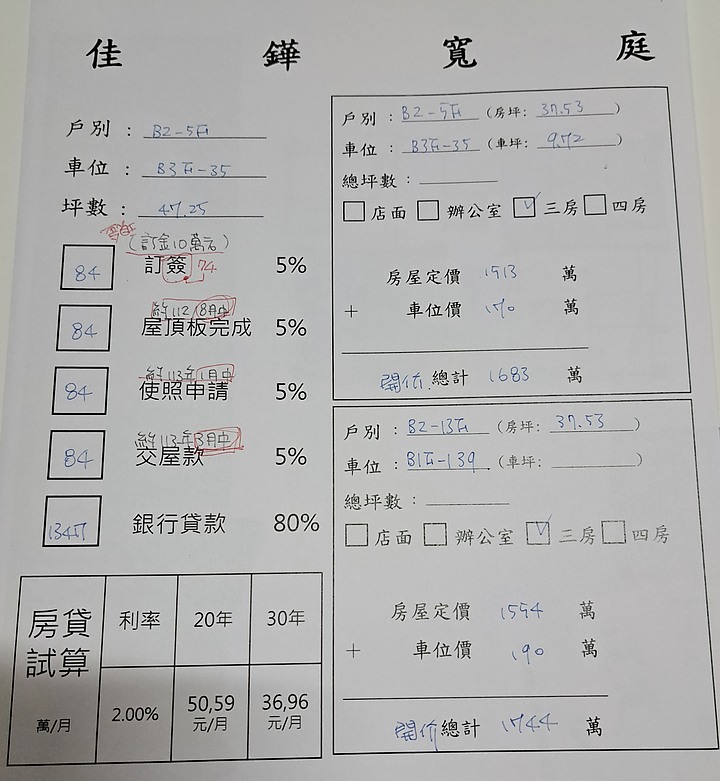 佳 鏵 寬 庭
戶別 : B2-5F
車位 : B3F-35
坪數 : 47.25
(訂金10萬元)
84 訂簽 74 5%
112/8月中
84 屋頂板完成 5%
113年1月中
84 使照申請 5%
113年3月中
84 交屋款 5%
1347 銀行貸款 80%
房貸試算 利率 20年 30年
萬/月 2.00% 50,59 元/月 36,96 元/月
戶別 : B2-5F (房坪: 37.53)
車位 : B3F-35 (車坪: 9.72)
總坪數 :
店面 辦公室 ✓ 三房 四房
房屋定價 1513 萬
+ 車位價 170 萬
開價總計 1683 萬
戶別 : B2-13F (房坪: 37.53)
車位 : B1F-139 (車坪: )
總坪數 :
店面 辦公室 ✓ 三房 四房
房屋定價 1554 萬
+ 車位價 190 萬
開价總計 1744 萬